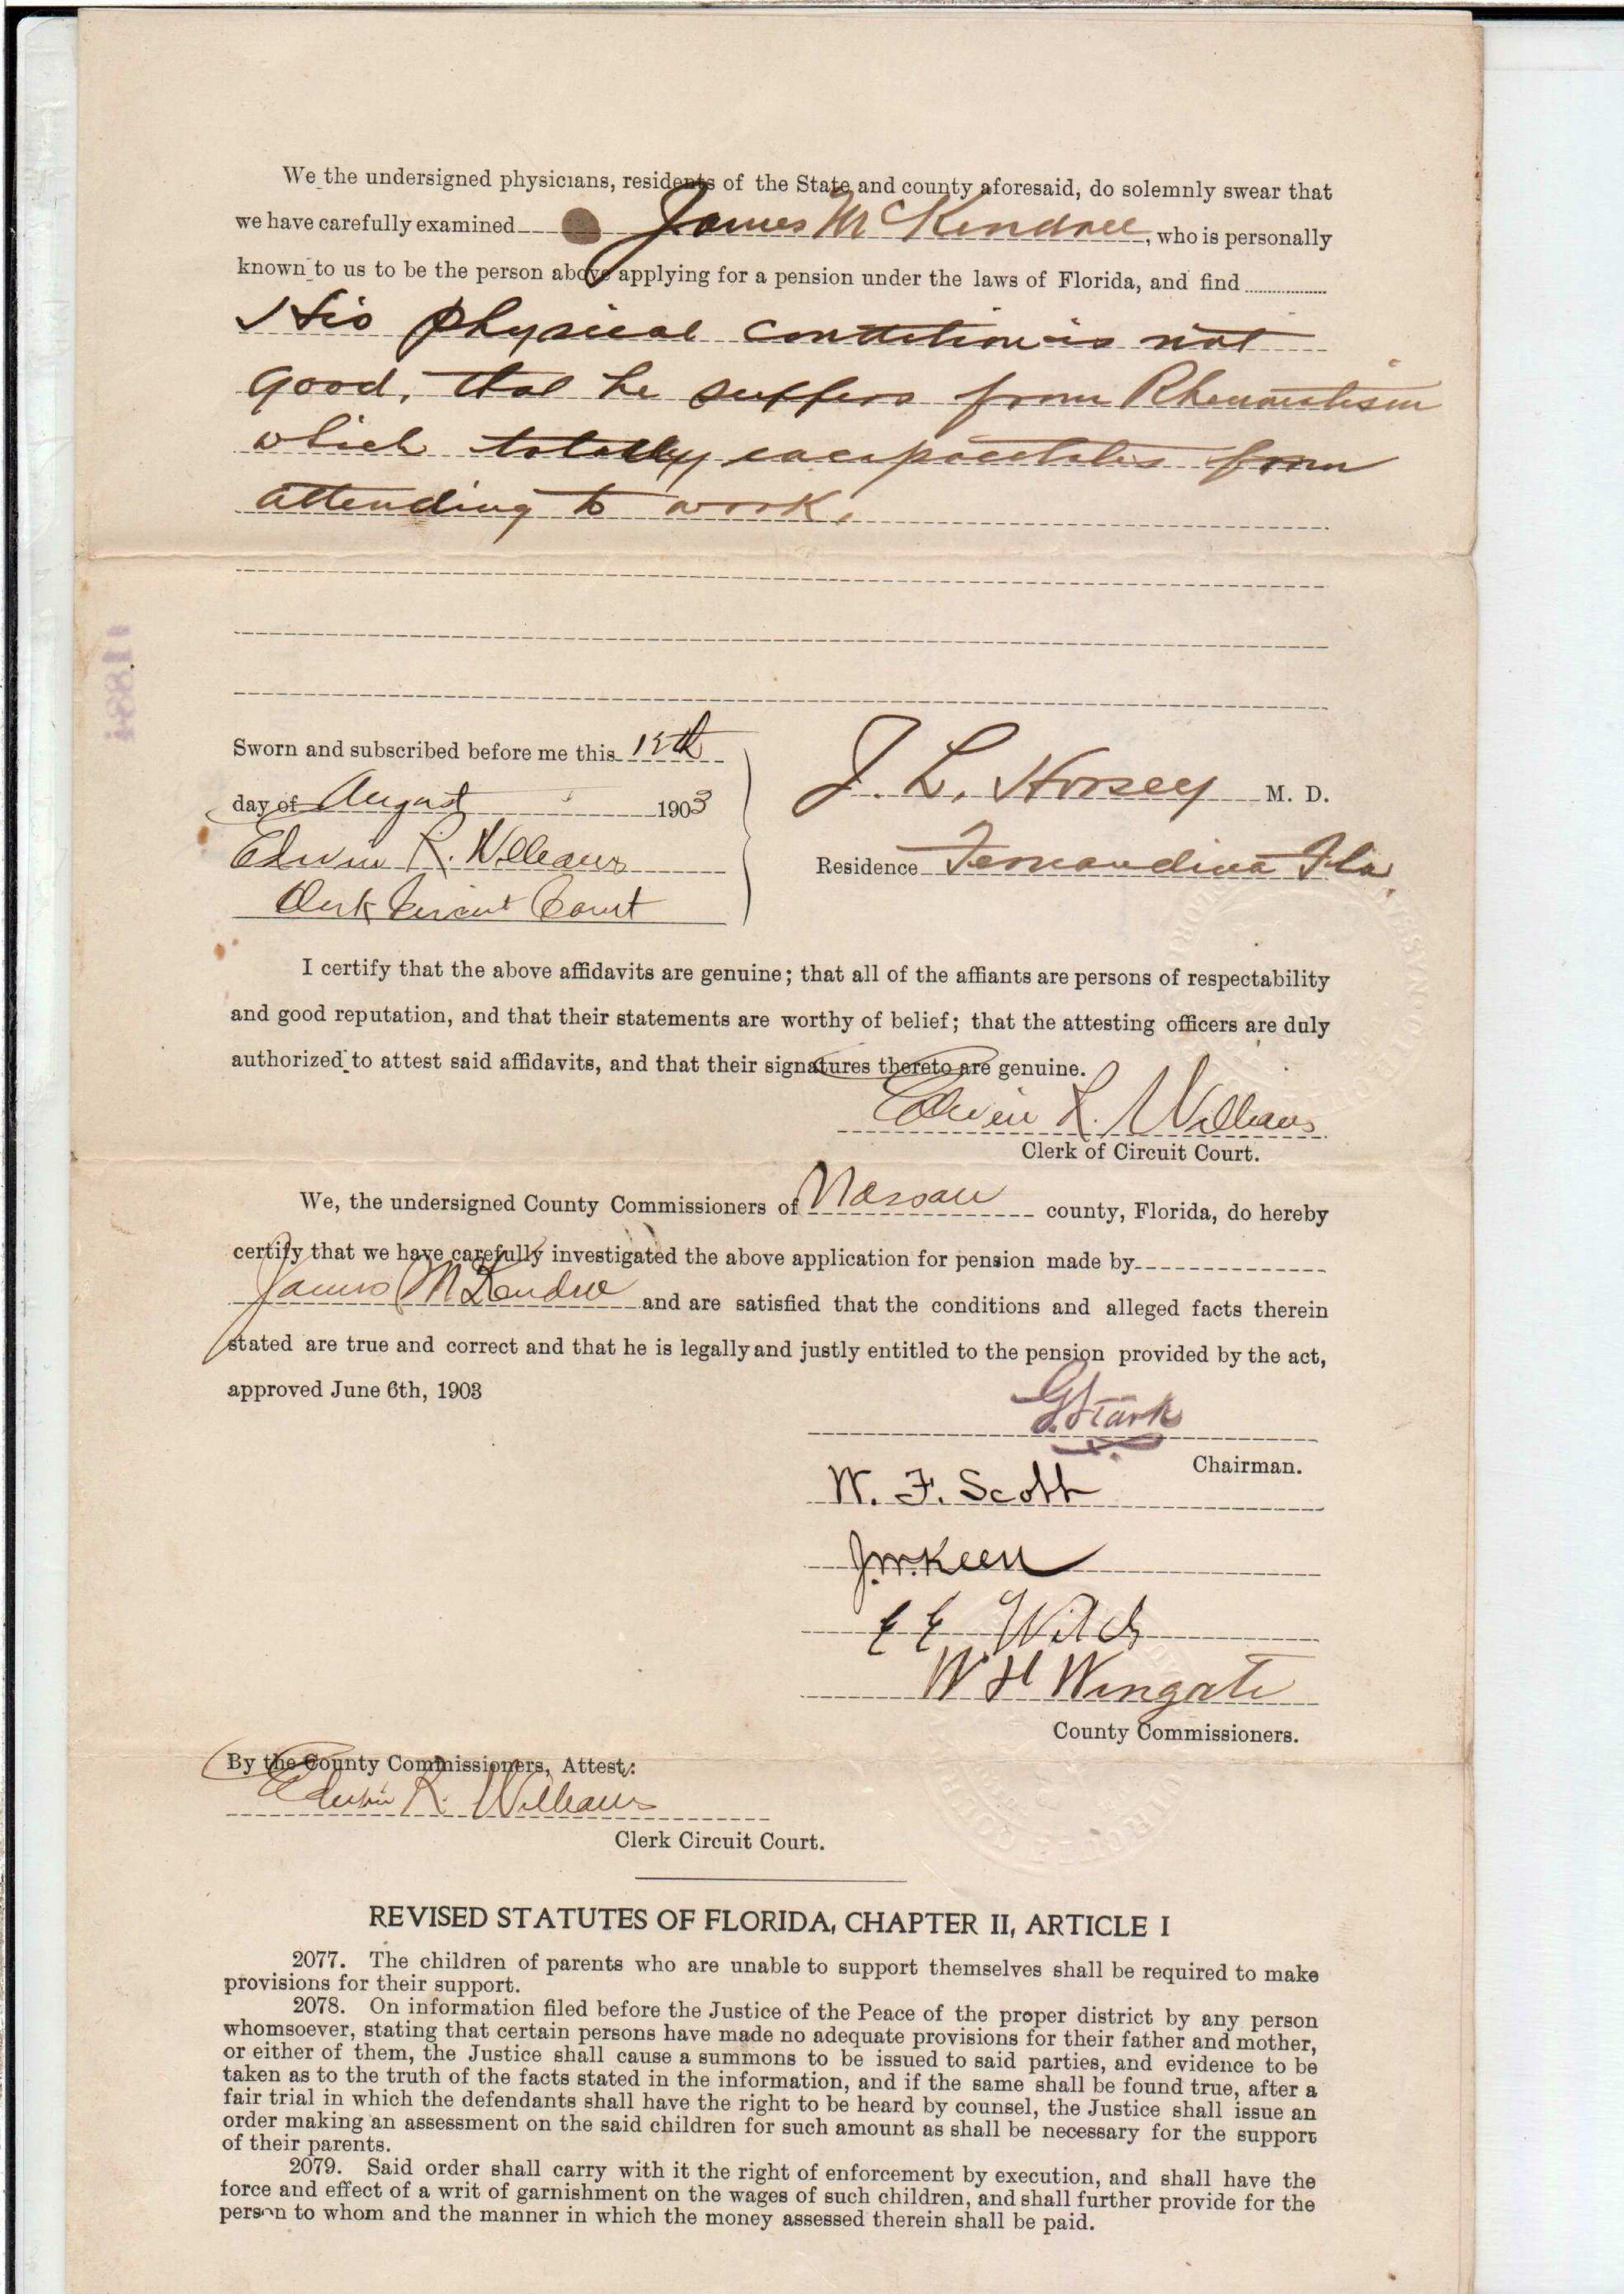 We the undersigned physicians, residents of the State and county aforesaid, do solemnly swear that
we have carefully examined James McKendree, who is personally
known to us to be the person above applying for a pension under the laws of Florida, and find
His physical condition is not
good, that he suffers from Rheumatism
which totally from
attending to work.
11884
Sworn and subscribed before me this
day of August 1903
Edwin R. Williams
Clerk Circuit Court
J. L. Horsey M. D.
Residence Fernandina Fla
I certify that the above affidavits are genuine; that all of the affiants are persons of respectability
and good reputation, and that their statements are worthy of belief; that the attesting officers are duly
authorized to attest said affidavits, and that their signatures thereto are genuine.
Edwin R. Williams
Clerk of Circuit Court.
We, the undersigned County Commissioners of Nassau county, Florida, do hereby
certify that we have carefully investigated the above application for pension made by
James McKendree and are satisfied that the conditions and alleged facts therein
stated are true and correct and that he is legally and justly entitled to the pension provided by the act,
approved June 6th, 1903
G Stark
Chairman.
W. F. Scott
J. W. Keen
W H Wingate
County Commissioners.
By the County Commissioners, Attest:
Edwin R. Williams
Clerk Circuit Court.
REVISED STATUTES OF FLORIDA, CHAPTER II, ARTICLE I
2077. The children of parents who are unable to support themselves shall be required to make
provisions for their support.
2078. On information filed before the Justice of the Peace of the proper district by any person
whomsoever, stating that certain persons have made no adequate provisions for their father and mother,
or either of them, the Justice shall cause a summons to be issued to said parties, and evidence to be
taken as to the truth of the facts stated in the information, and if the same shall be found true, after a
fair trial in which the defendants shall have the right to be heard by counsel, the Justice shall issue an
order making an assessment on the said children for such amount as shall be necessary for the support
of their parents.
2079. Said order shall carry with it the right of enforcement by execution, and shall have the
force and effect of a writ of garnishment on the wages of such children, and shall further provide for the
person to whom and the manner in which the money assessed therein shall be paid.